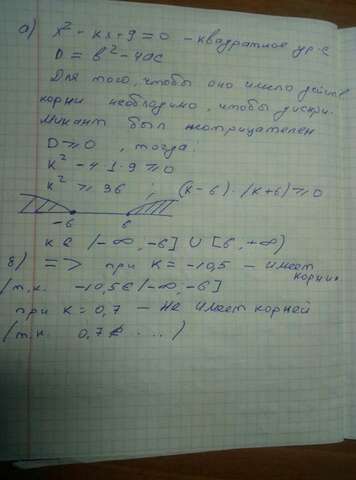 а) x² - кx + 9 = 0 - квадратное ур-е
D = в² - 4ас
Для того, чтобы оно имело действ.
корни необходимо, чтобы дискри-
минант был неотрицателен
D ≥ 0, тогда:
к² - 4·1·9 ≥ 0
к² ≥ 36 ; (к-6)·(к+6) ≥ 0
-6 6
к ∈ (-∞, -6] ∪ [6, +∞)
в) => при к = -10,5 - имеет
корни
(т.к. -10,5 ∈ (-∞, -6]
при к = 0,7 - не имеет корней
(т.к. 0,7 ∉ ....)